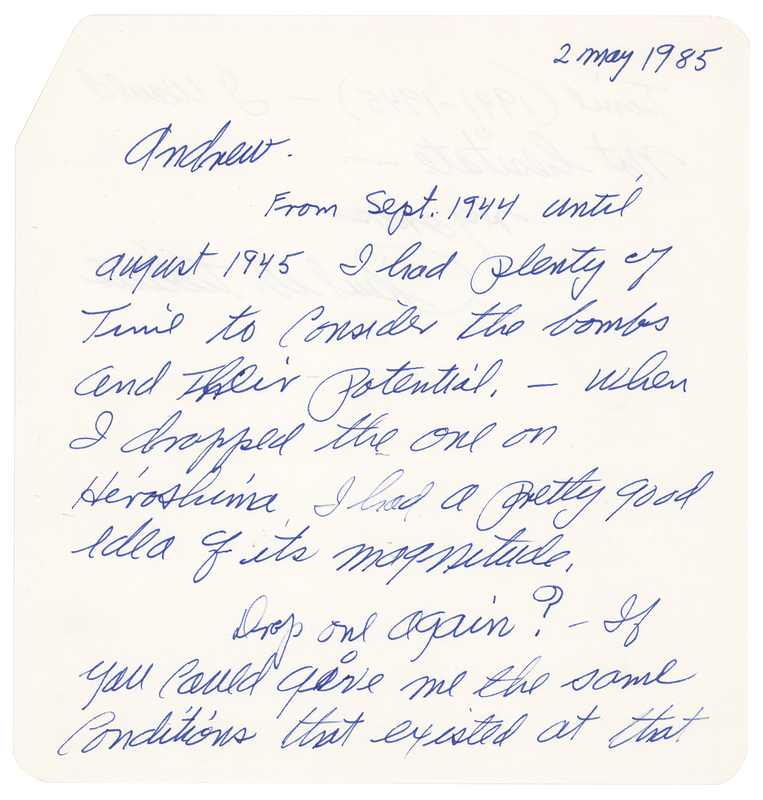 2 may 1985
Andrew.
From Sept. 1944 until
august 1945 I had plenty of
Time to Consider the bombs
and Their Potential. — when
I dropped the one on
Hiroshima I had a pretty good
idea of its magnitude.
Drop one again? - If
you Could give me the same
Conditions that existed at that